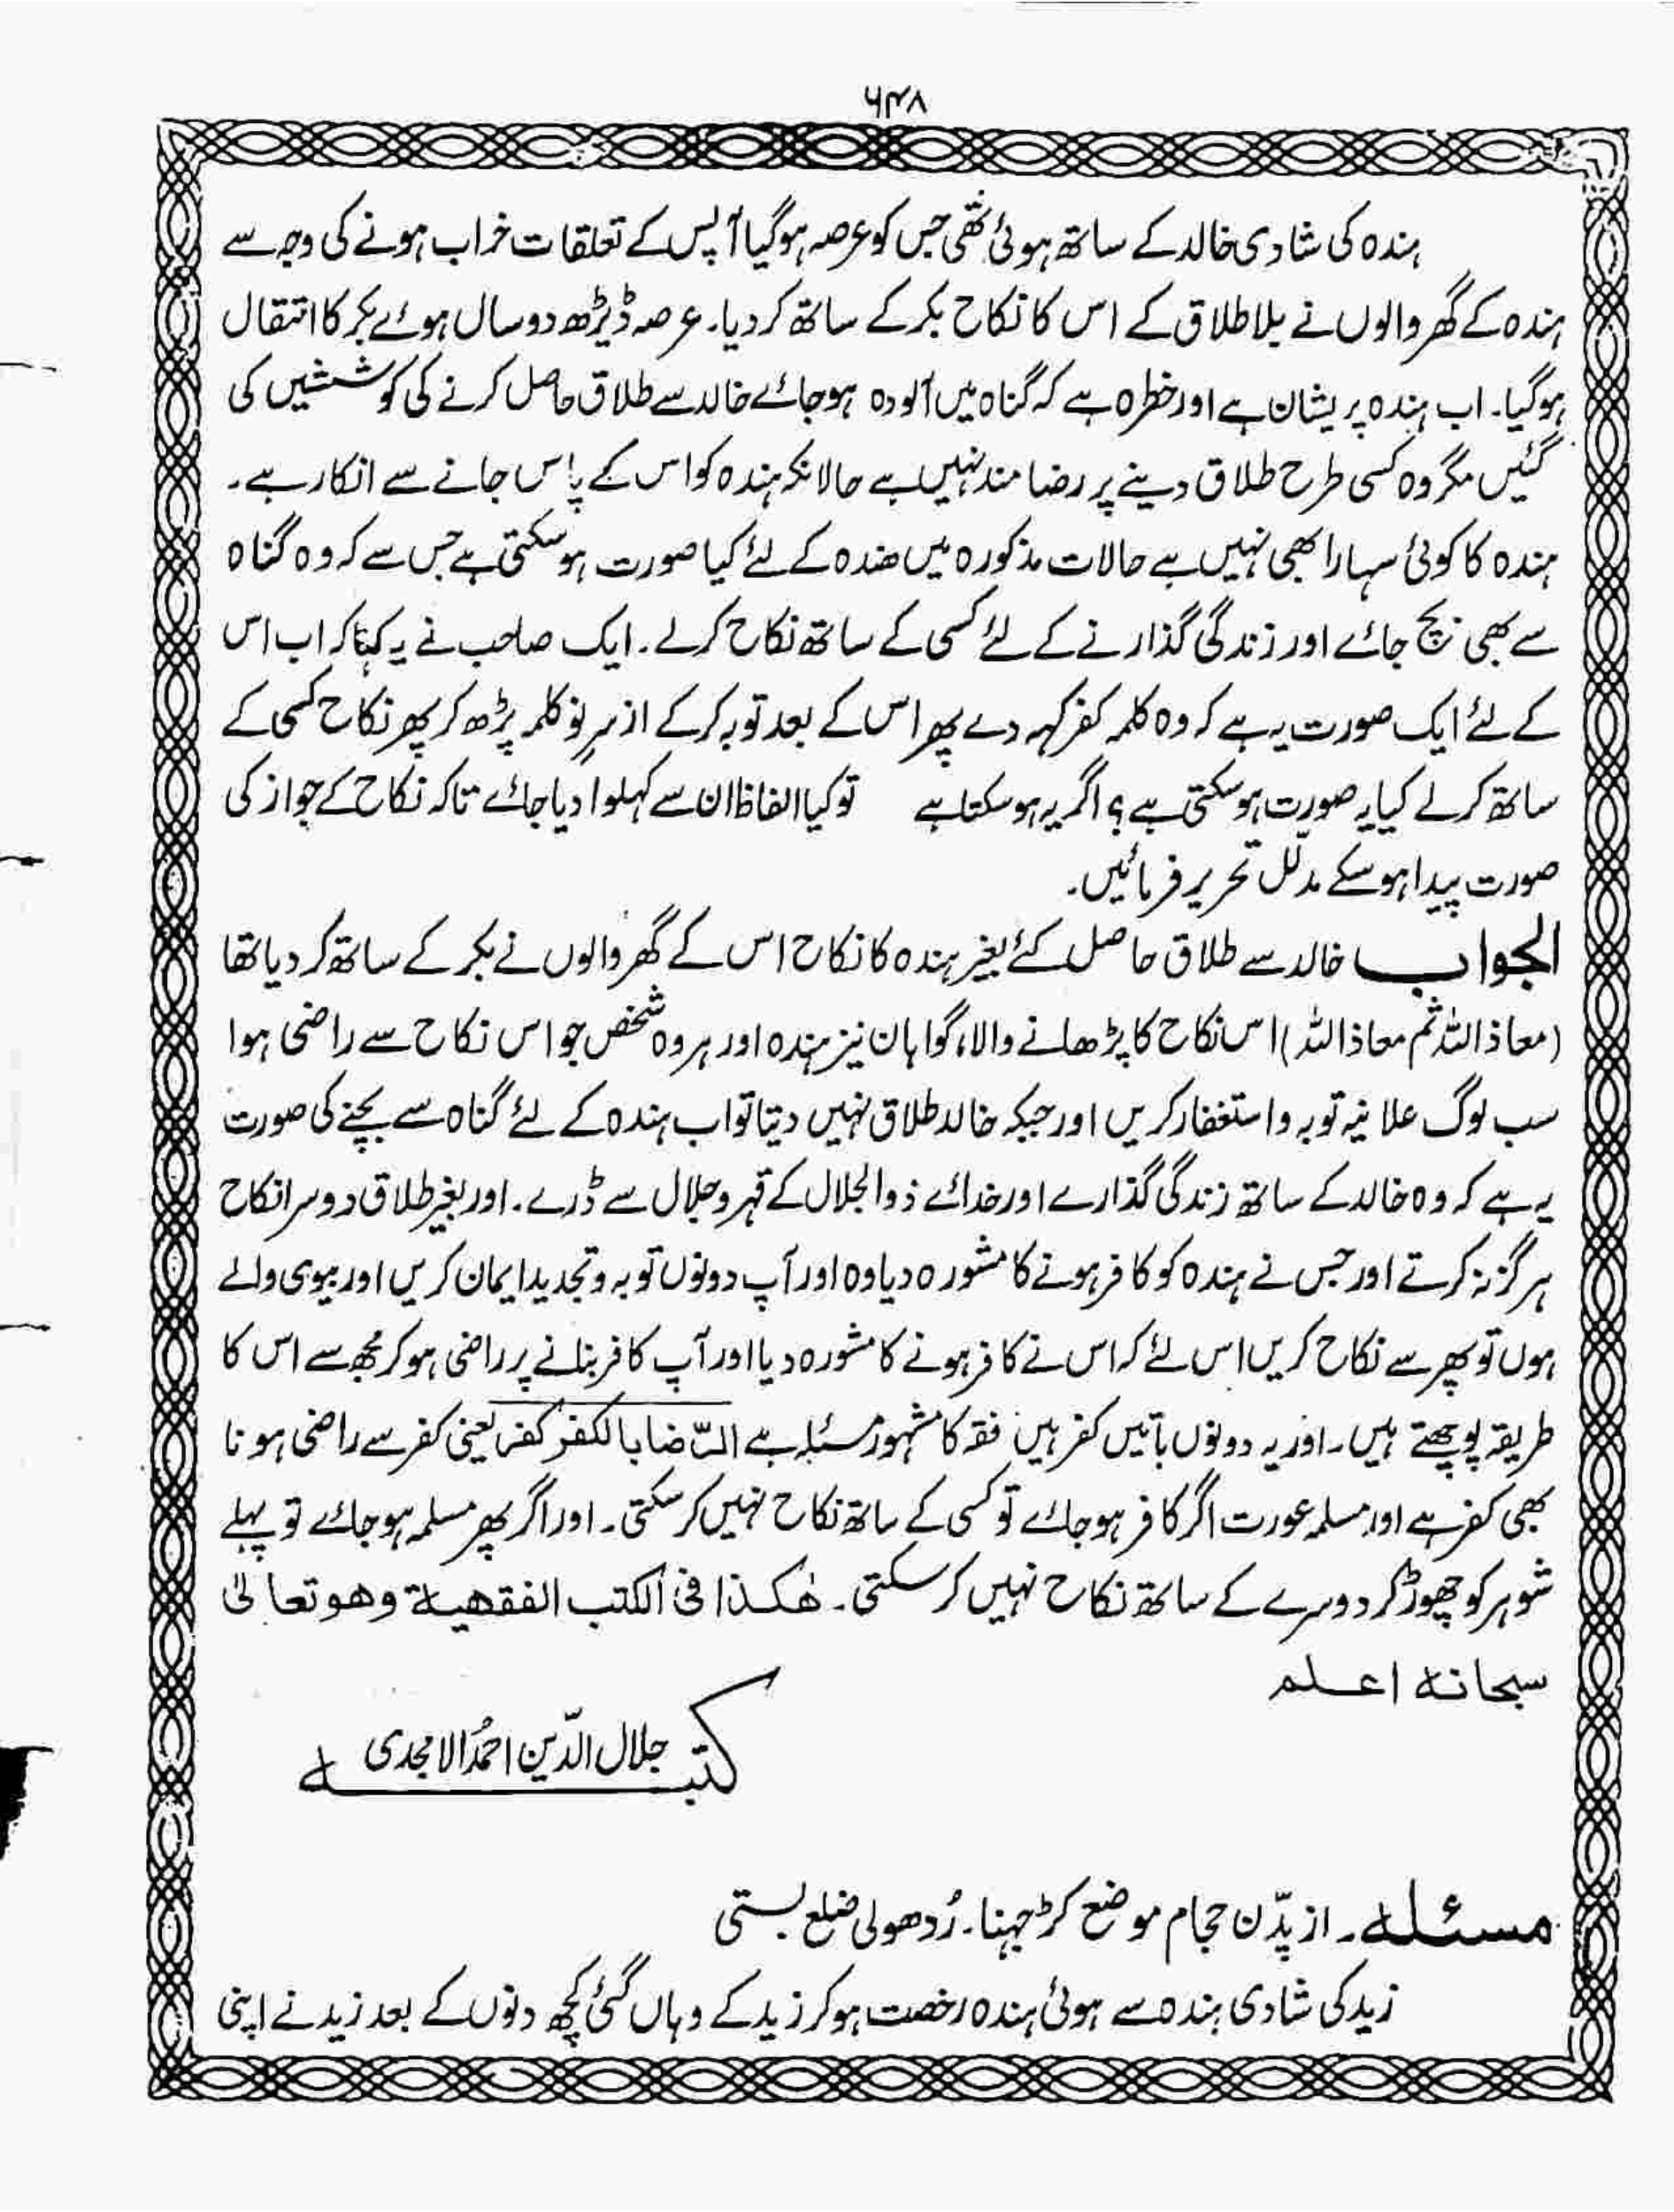 ۶۴۸
ہندہ کی شادی خالد کے ساتھ ہوئی تھی جس کو عرصہ ہوگیا آپس کے تعلقات خراب ہونے کی وجہ سے
ہندہ کے گھر والوں نے بلا طلاق کے اس کا نکاح بکر کے ساتھ کردیا۔ عرصہ ڈیڑھ دو سال ہوئے بکر کا انتقال
ہوگیا۔ اب ہندہ پریشان ہے اور خطرہ ہے کہ گناہ میں آلودہ ہوجائے خالد سے طلاق حاصل کرنے کی کوششیں کی
گئیں مگر وہ کسی طرح طلاق دینے پر رضا مند نہیں ہے حالانکہ ہندہ کو اس کے پاس جانے سے انکار ہے۔
ہندہ کا کوئی سہارا بھی نہیں ہے حالات مذکورہ میں ھندہ کے لئے کیا صورت ہوسکتی ہے جس سے کہ وہ گناہ
سے بھی بچ جائے اور زندگی گذارنے کے لئے کسی کے ساتھ نکاح کرلے۔ ایک صاحب نے یہ کہا کہ اب اس
کے لئے ایک صورت یہ ہے کہ وہ کلمہ کفر کہہ دے پھر اس کے بعد توبہ کرکے از سرِ نو کلمہ پڑھ کر پھر نکاح کسی کے
ساتھ کرلے کیا یہ صورت ہوسکتی ہے؟ اگر یہ ہوسکتا ہے تو کیا الفاظ ان سے کہلوا دیا جائے تاکہ نکاح کے جواز کی
صورت پیدا ہوسکے مدلّل تحریر فرمائیں۔
الجواب خالد سے طلاق حاصل کئے بغیر ہندہ کا نکاح اس کے گھر والوں نے بکر کے ساتھ کردیا تھا
(معاذ اللہ ثم معاذ اللہ) اس نکاح کا پڑھانے والا، گواہان نیز ہندہ اور ہر وہ شخص جو اس نکاح سے راضی ہوا
سب لوگ علانیہ توبہ و استغفار کریں اور جبکہ خالد طلاق نہیں دیتا تو اب ہندہ کے لئے گناہ سے بچنے کی صورت
یہ ہے کہ وہ خالد کے ساتھ زندگی گذارے اور خدائے ذوالجلال کے قہر وجلال سے ڈرے۔ اور بغیر طلاق دوسرا نکاح
ہرگز نہ کرتے اور جس نے ہندہ کو کافر ہونے کا مشورہ دیا وہ اور آپ دونوں توبہ و تجدید ایمان کریں اور بیوی والے
ہوں تو پھر سے نکاح کریں اس لئے کہ اس نے کافر ہونے کا مشورہ دیا اور آپ کافر بنانے پر راضی ہوکر مجھ سے اس کا
طریقہ پوچھتے ہیں۔ اور یہ دونوں باتیں کفر ہیں فقہ کا مشہور مسئلہ ہے الرّضا بالکفر کفر یعنی کفر سے راضی ہونا
بھی کفر ہے اور مسلمہ عورت اگر کافر ہوجائے تو کسی کے ساتھ نکاح نہیں کرسکتی۔ اور اگر پھر مسلمہ ہوجائے تو پہلے
شوہر کو چھوڑ کر دوسرے کے ساتھ نکاح نہیں کرسکتی۔ ھٰکذا فی الکتب الفقھیۃ وھو تعالیٰ
سبحانہ اعلم
کتبـــہ جلال الدّین احمدُ الامجدی
مسئلہ۔ از پدّن حجام موضع کڑجہنا۔ رُدھولی ضلع بستی
زید کی شادی ہندہ سے ہوئی ہندہ رخصت ہوکر زید کے وہاں گئی کچھ دنوں کے بعد زید نے اپنی